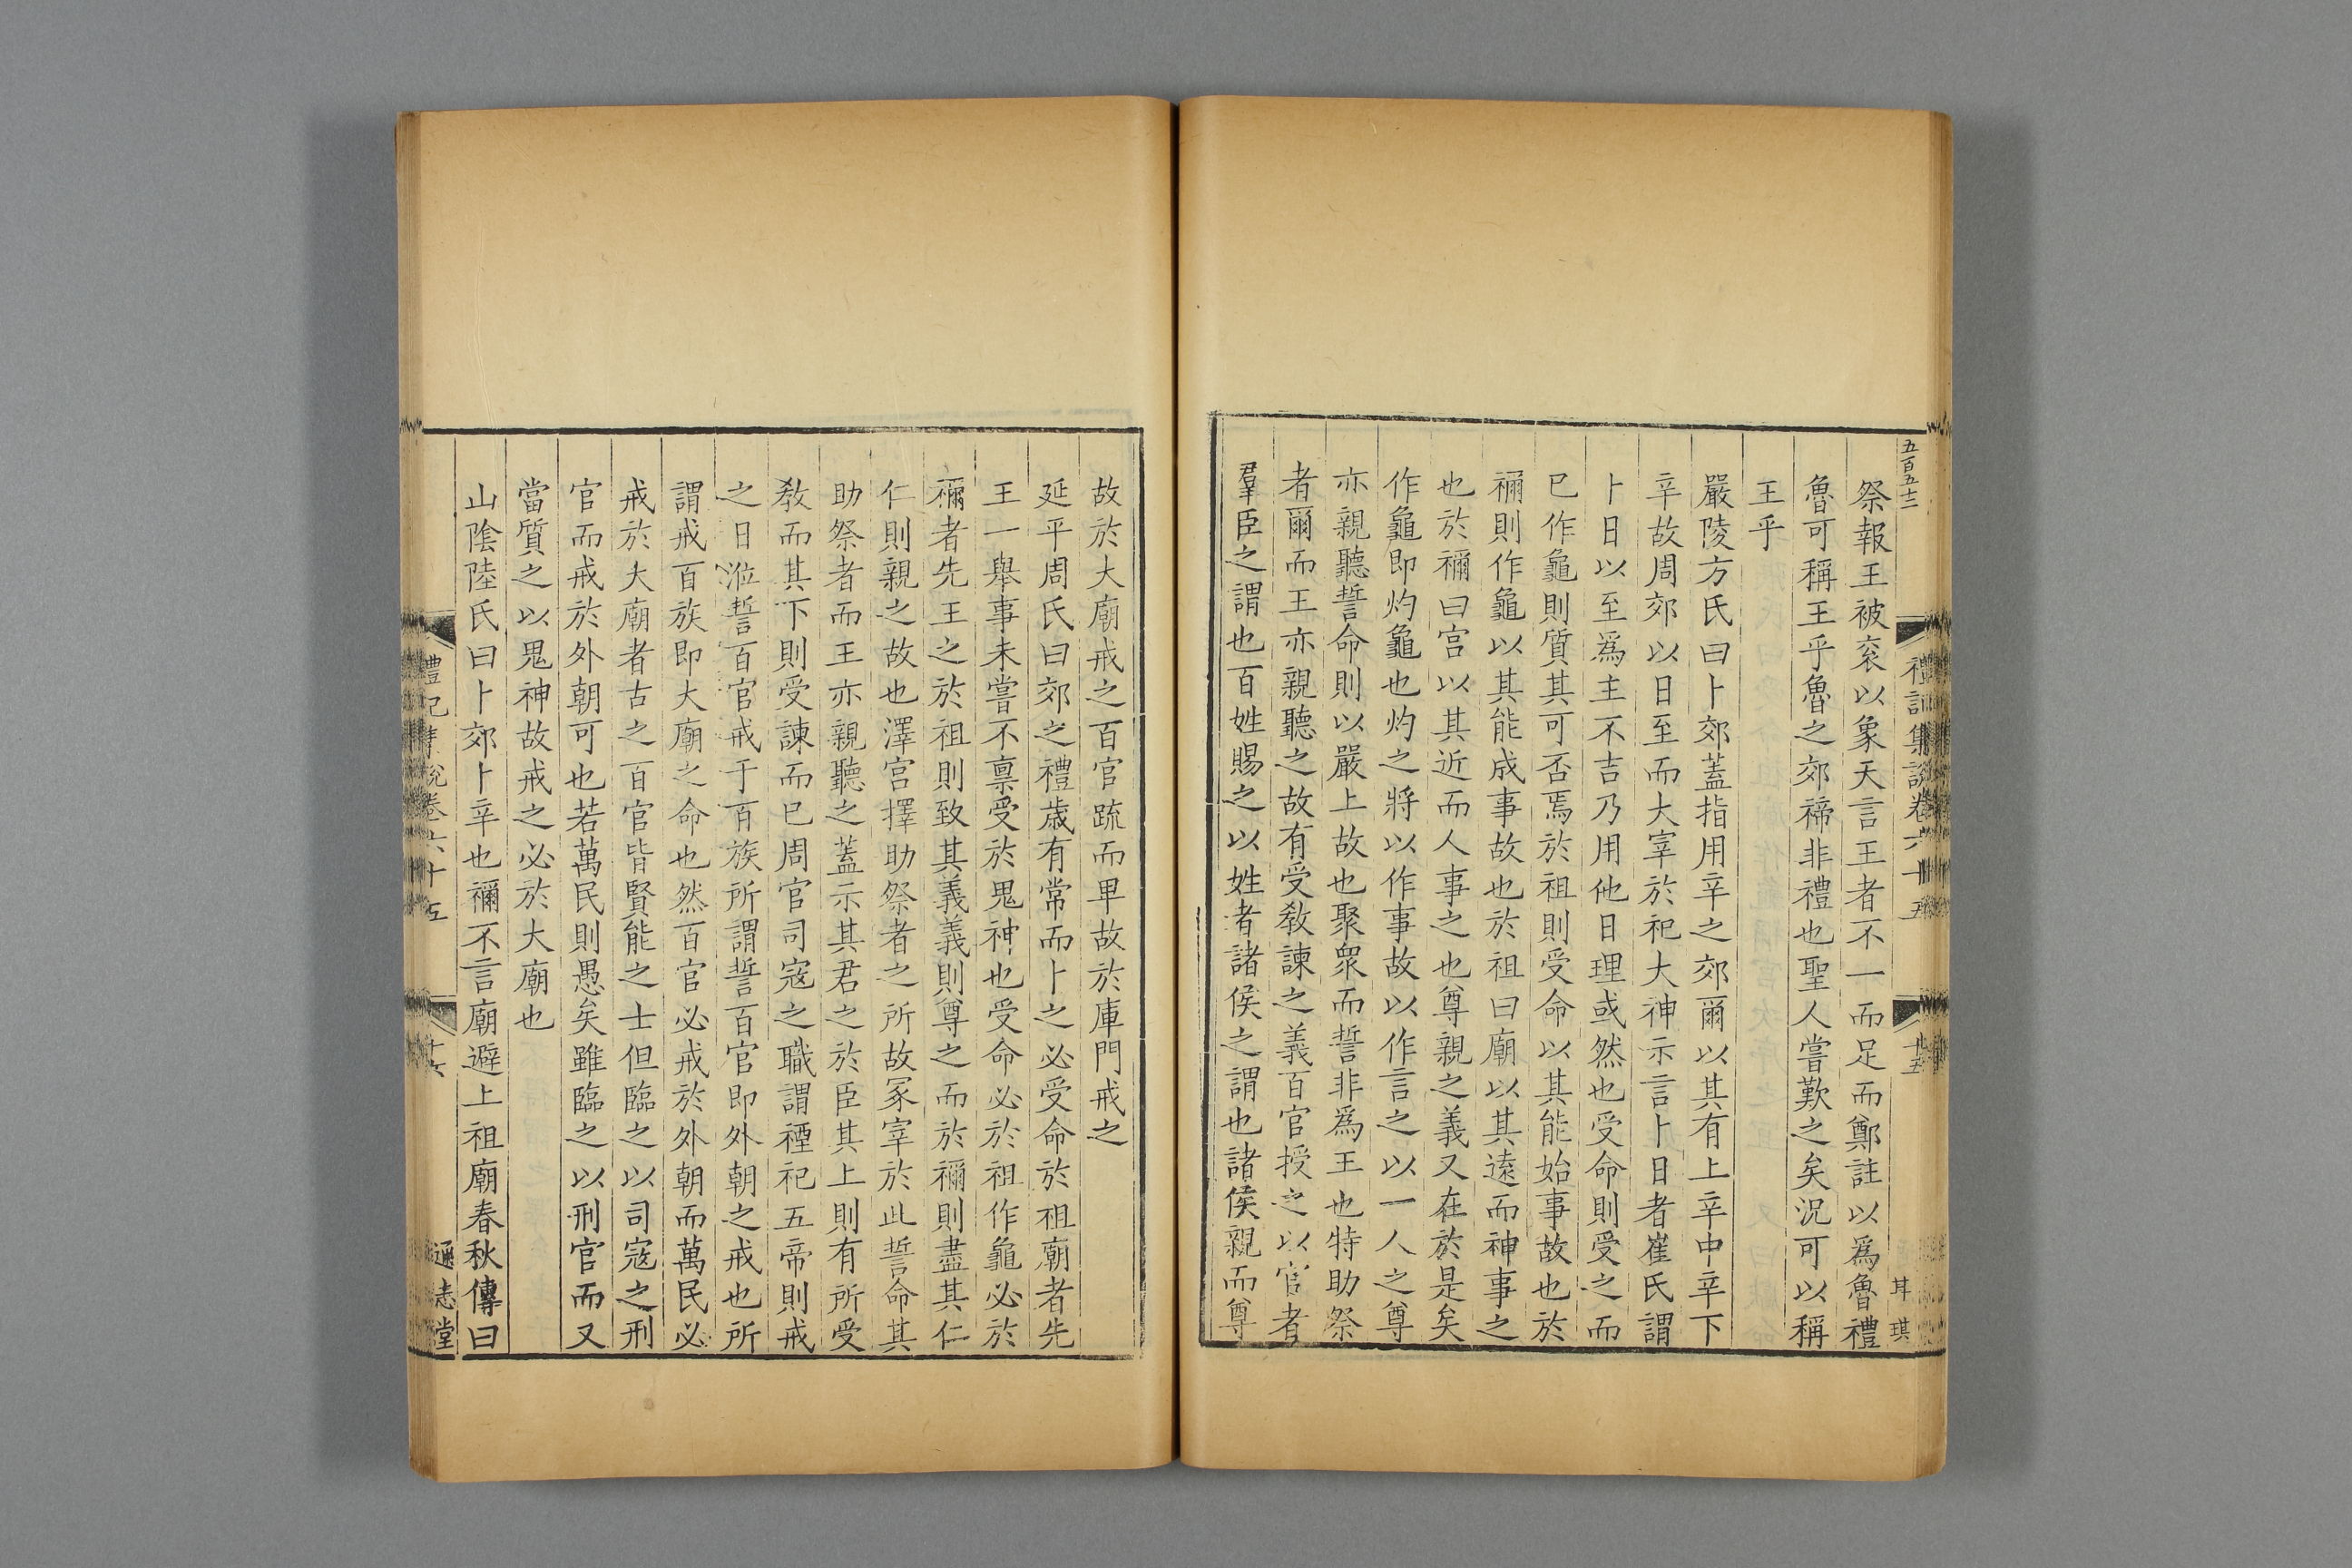 五百五十二
禮記集說卷六十五
十五
耳琪
祭報王被衮以象天言王者不一而足而鄭註以爲魯禮
魯可稱王乎魯之郊禘非禮也聖人嘗歎之矣況可以稱
王乎
嚴陵方氏曰卜郊蓋指用辛之郊爾以其有上辛中辛下
辛故周郊以日至而大宰於祀大神示言卜日者崔氏謂
卜日以至爲主不吉乃用他日理或然也受命則受之而
已作龜則質其可否焉於祖則受命以其能始事故也於
禰則作龜以其能成事故也於祖曰廟以其遠而神事之
也於禰曰宫以其近而人事之也尊親之義又在於是矣
作龜即灼龜也灼之將以作事故以作言之以一人之尊
亦親聽誓命則以嚴上故也聚衆而誓非爲王也特助祭
者爾而王亦親聽之故有受敎諫之義百官授之以官者
羣臣之謂也百姓賜之以姓者諸侯之謂也諸侯親而尊
故於大廟戒之百官疏而卑故於庫門戒之
延平周氏曰郊之禮歲有常而卜之必受命於祖廟者先
王一舉事未嘗不禀受於鬼神也受命必於祖作龜必於
禰者先王之於祖則致其義義則尊之而於禰則盡其仁
仁則親之故也澤宫擇助祭者之所故冢宰於此誓命其
助祭者而王亦親聽之蓋示其君之於臣其上則有所受
敎而其下則受諫而已周官司寇之職謂禋祀五帝則戒
之日涖誓百官戒于百族所謂誓百官即外朝之戒也所
謂戒百族即大廟之命也然百官必戒於外朝而萬民必
戒於大廟者古之百官皆賢能之士但臨之以司寇之刑
官而戒於外朝可也若萬民則愚矣雖臨之以刑官而又
當質之以鬼神故戒之必於大廟也
山陰陸氏曰卜郊卜辛也禰不言廟避上祖廟春秋傳曰
禮記集說卷六十五
十六
通志堂